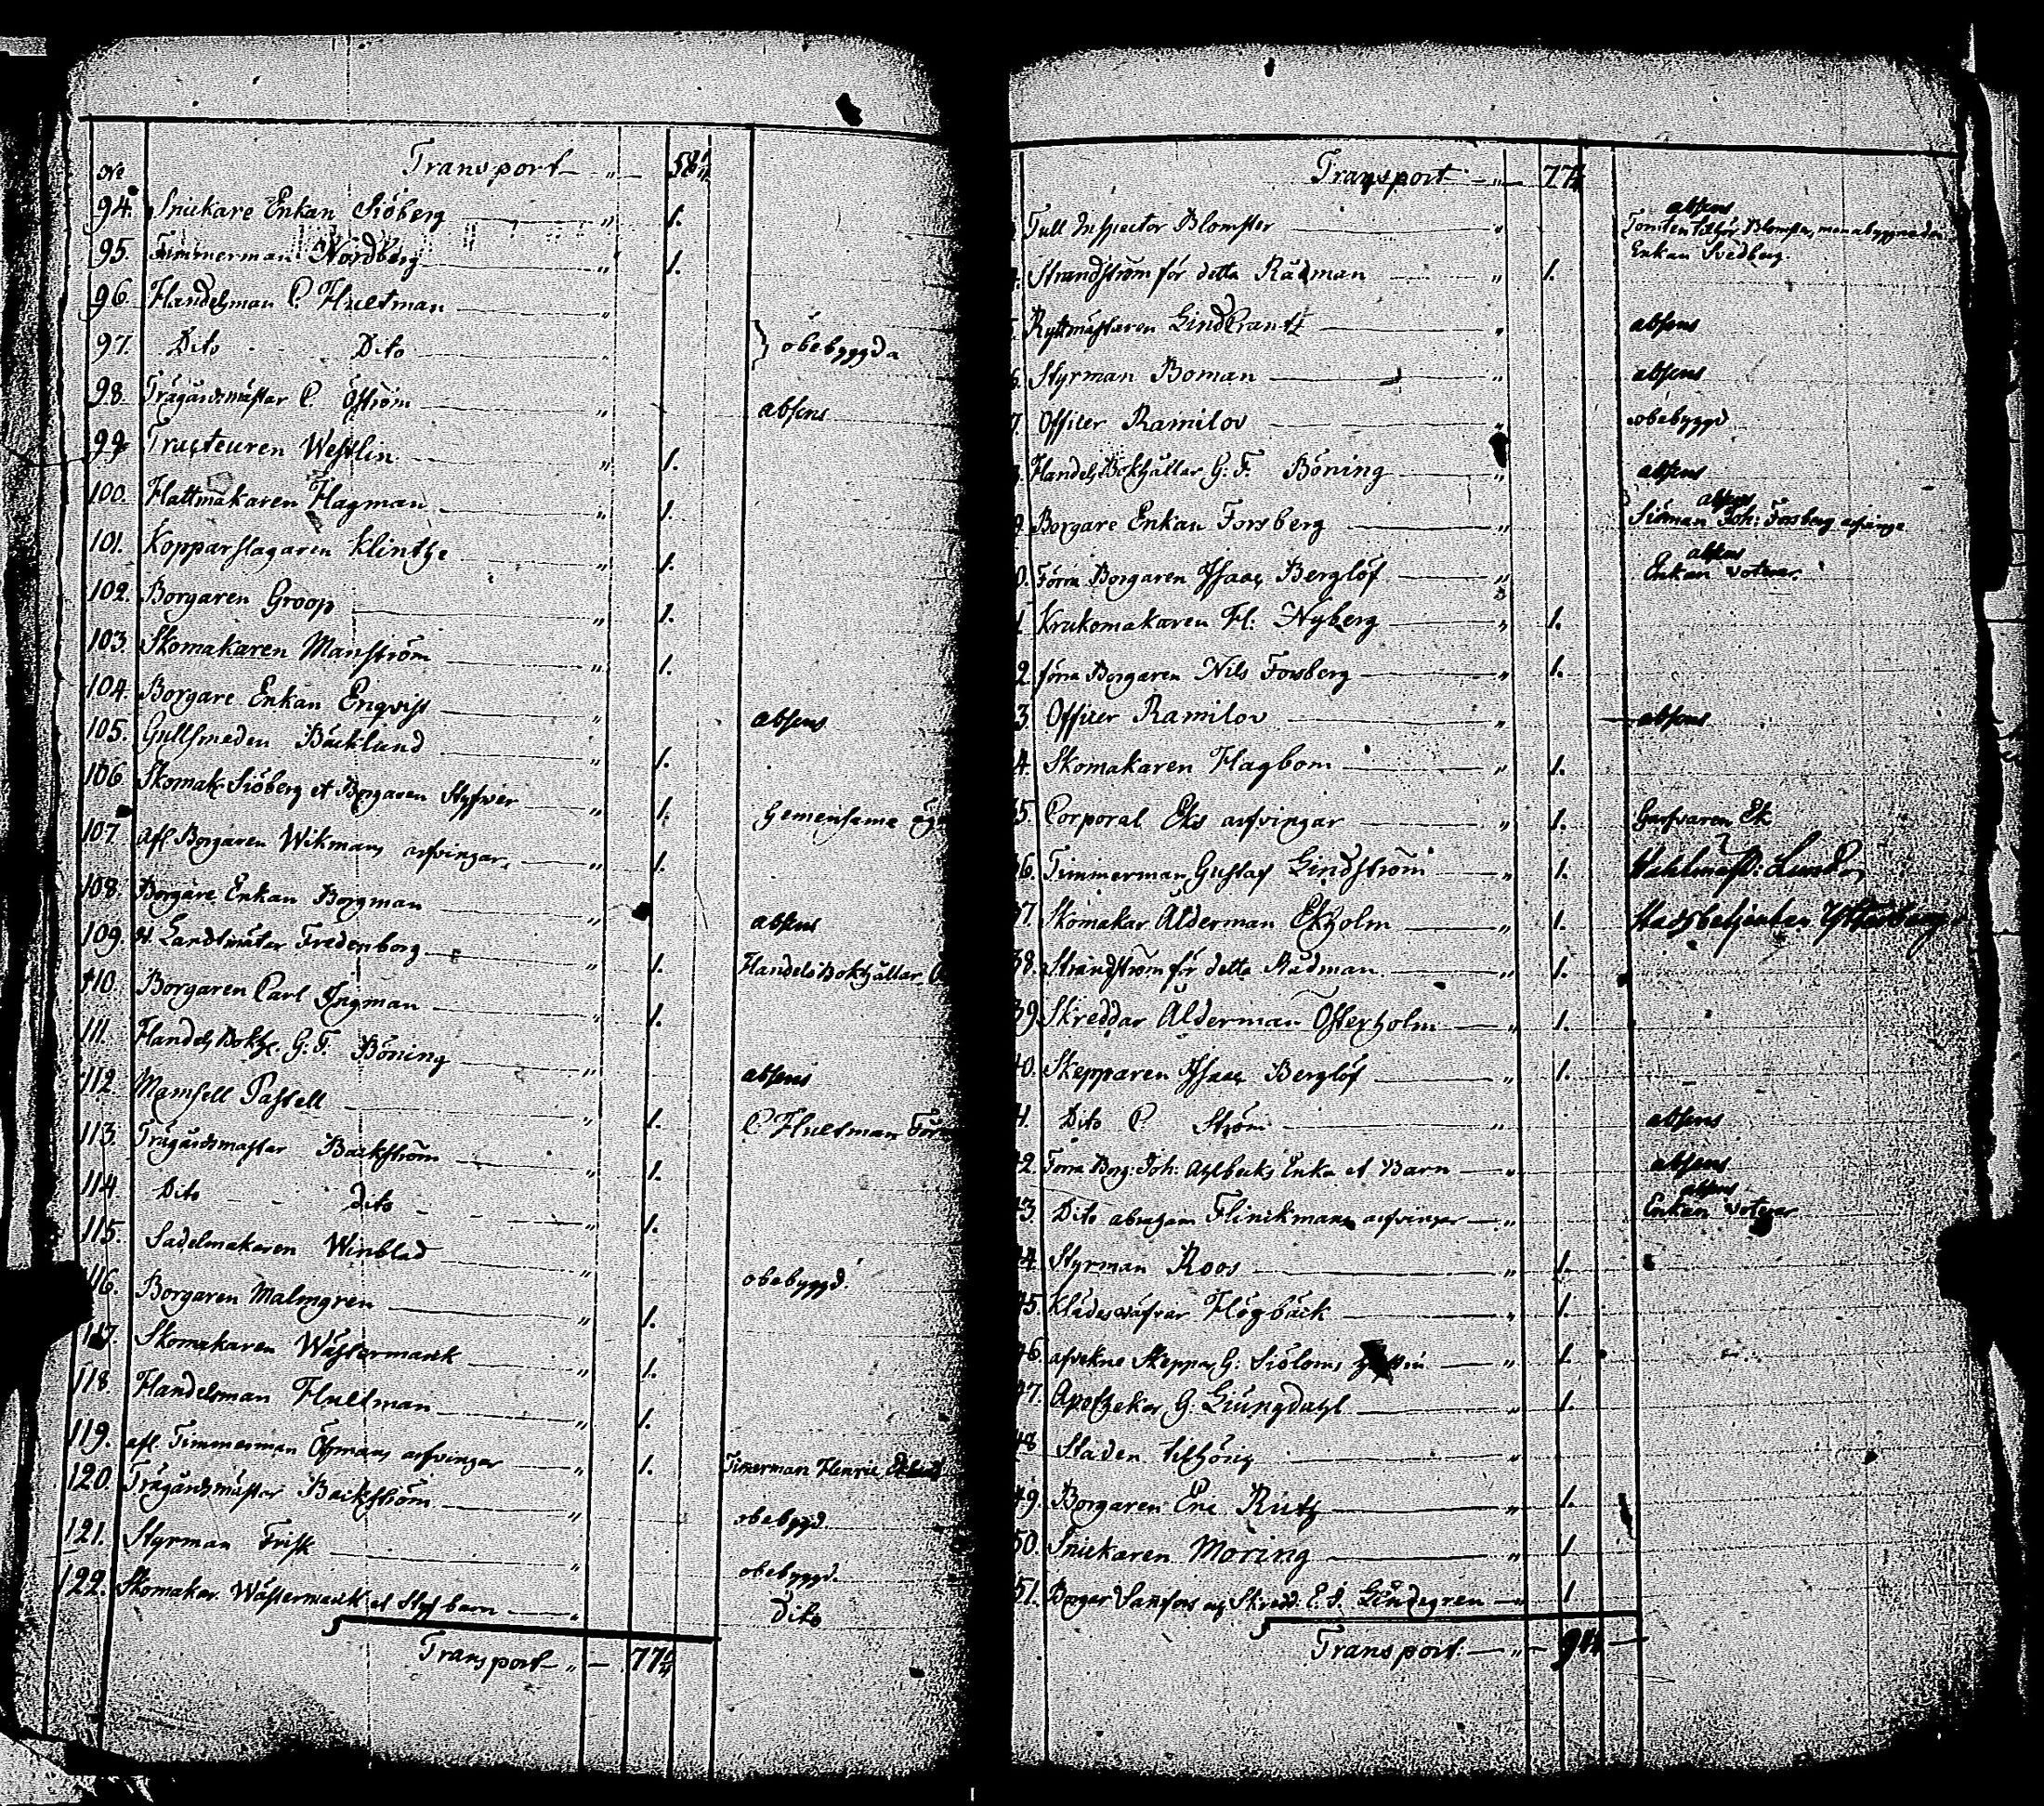 No Transport 58 1/4
94. Snickare Enkan Siöberg 1.
95. Timmerman Nordberg 1.
96. Handelsman C. Hultman
97. Dito Dito } obebyggda
98. Trägårdsmästar C. Öström absens
99. Tracteuren Westlin 1.
100. Hattmakaren Hagman 1.
101. Kopparslagaren Klinthe 1.
102. Borgaren Groop 1.
103. Skomakaren Manström 1.
104. Borgare Enkan Enqvist absens
105. Gullsmeden Bäcklund 1.
106. Skomak. Siöberg et Borgaren Styfver 1. Gemensama
107. afl. Borgaren Wikmans arfvingar 1.
108. Borgare Enkan Borgman absens
109. Landtmätar Fredenborg 1. Handels Bokhållar
110. Borgaren Carl Ingman 1.
111. Handels Bokh. G. F. Böning absens
112. Mamsell Pastell 1. C. Hultman
113. Trägårdsmästar Backström 1.
114. Dito dito 1.
115. Sadelmakaren Winblad obebyggd.
116. Borgaren Malmgren 1.
117. Skomakaren Wästermarck 1.
118. Handelsman Hultman 1.
119. afl. Timmerman Östmans arfvingar 1. Timerman Henric
120. Trägårdsmästar Backström obebygd.
121. Styrman Frisk obebyggd.
122. Skomakar Wästermarck et Styf barn Dito
Transport 77 1/4
Transport 77 1/4
absens
Tull Inspector Blomster Tomten tilhör Blomster, men åbyggnaden
Enkan Svedberg.
Strandström för detta Rådman 1.
Ryttmästaren Lindcrantz absens
Styrman Boman absens
7. Officer Ramilov obebyggd
Handels Bokhållar G. F. Böning absens
absens
9. Borgare Enkan Forsberg Siöman Joh: Forsberg arfvinge
absens
0. Förra Borgaren Isaac Berglöf Enkan voterar.
1. Krukomakaren H: Nyberg 1.
2. förra Borgaren Nils Forsberg 1.
3 Officer Ramilov absens
4. Skomakaren Hagbom 1.
35. Corporal Eks arfvingar 1. Garfvaren Ek
36. Timmerman Gustaf Lindström 1.
37. Skomakar Ålderman Ekholm 1. Stadsbetjenten
38. Strandström för detta Rådman 1.
39. Skreddar Ålderman Österholm 1.
40. Skepparen Isaac Berglöf 1.
41. Dito C Ström absens
42. Förra Borg: Joh: Ahlbecks Enka et Barn absens
absens
43. Dito Abraham Flinckmans arfvingar Enkan voterar
44. Styrman Roos 1.
45. Klädesväfvar Högback 1.
46. afvekne Skeppar G: Siöloms 1.
47. Apothekar G. Liungdahl 1.
48 Staden tilhörig
49. Borgaren Eric Ruth 1.
50. Snickaren Moring 1
51. Borgar Sanfors og Skredd. E. J. Lindegren 1
Transport 94 1/4